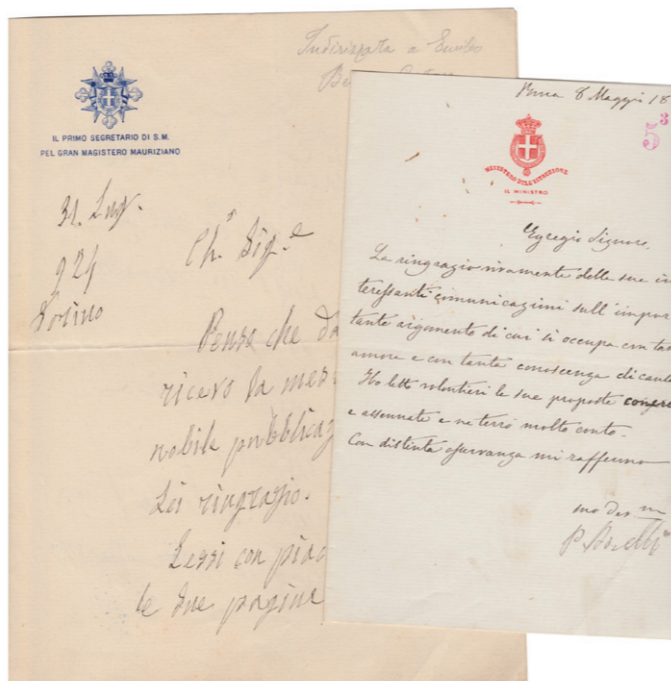 Indirizzata a Emilio
IL PRIMO SEGRETARIO DI S.M.
PEL GRAN MAGISTERO MAURIZIANO
31. Lug.
924
Torino
Ch.º Sig.e
Pensa che da
ricevo la
nobile pubblicaz
Lei ringrazio.
Lessi con piac
le due pagine
Roma 8 Maggio 18
5³
MINISTERO DELL'ISTRUZIONE
IL MINISTRO
Egregio Signore,
La ringrazio vivamente delle sue in
teressanti comunicazioni sull'impor
tante argomento di cui si occupa con tan
amore e con tanta conoscenza di
Ho letto volentieri le sue proposte
e assennate e ne terrò molto conto.
Con distinta osservanza mi raffermo
suo
P. Boselli